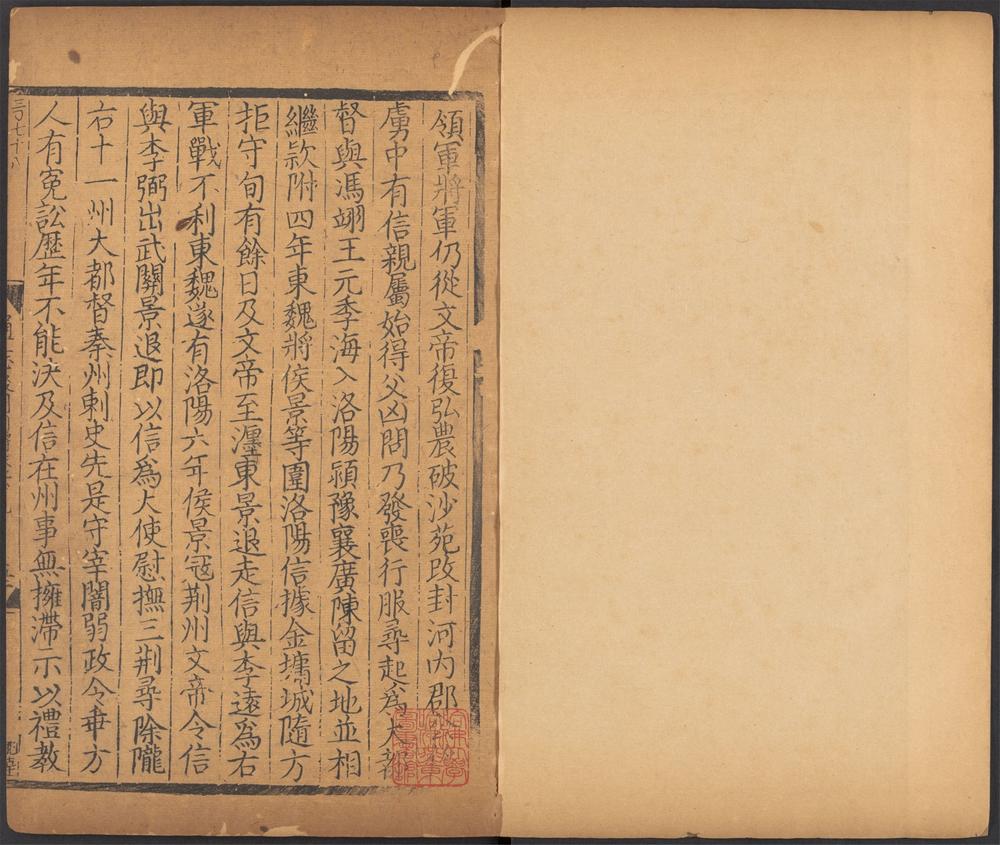 領軍將軍仍從文帝復弘農破沙苑改封河内郡
虜中有信親屬始得父凶問乃發喪行服尋起爲大都
督與馮翊王元季海入洛陽潁豫襄廣陳留之地並相
繼款附四年東魏將侯景等圍洛陽信據金墉城隨方
拒守旬有餘日及文帝至瀍東景退走信與李遠爲右
軍戰不利東魏遂有洛陽六年侯景冦荆州文帝令信
與李弼出武關景退即以信爲大使慰撫三荆尋除隴
右十一州大都督秦州刺史先是守宰闇弱政令乖方
人有寃訟歷年不能決及信在州事無擁滯示以禮教
三百七十八